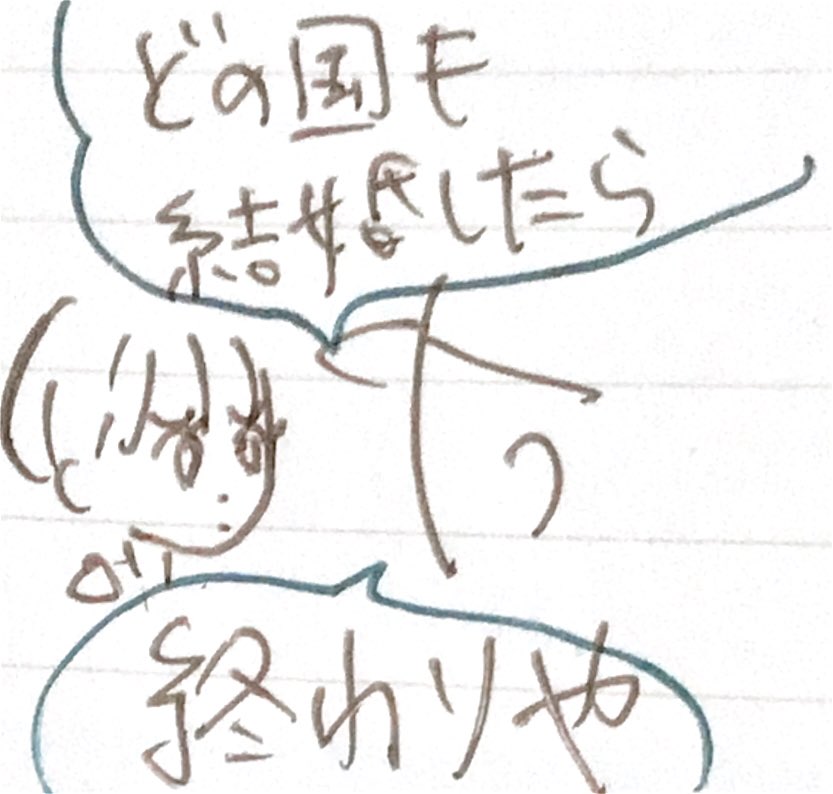 どの国も
結婚したら
終わりや